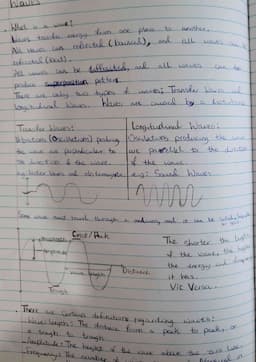 Waves
What is a wave?
Waves transfer energy from one place to another.
All waves can reflected (bounced), and all waves can be
refracted (bent).
All waves can be diffracted, and all waves can be
produce superposition pattern.
There are only two types of waves; Transfer Waves and
Longitudinal Waves. Waves are caused by a
Transfer Waves:
Vibrations (Oscillations)
the wave are perpendicular to
the direction of the wave.
e.g: Water Waves and
Longitudinal Waves:
Oscillations producing the wave
are parallel to the direction
of the wave.
e.g: Sound Waves
Some wave must travel through a medium, and it can be
Crest/Peak
amplitude
wave length
Distance
Trough
The shorter the length
of the wave, the
the energy and frequency
it has.
Vic Versa.
There are certain definitions regarding waves:
- Wave length: The distance from a peak to peak, or
a trough to trough
- Amplitude: The height of the wave above the
- Frequency: The number of